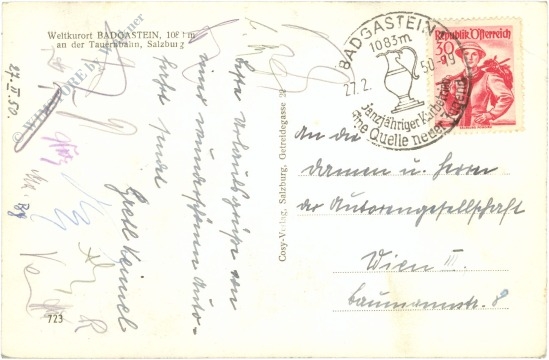 Weltkurort BADGASTEIN, 1083 m
an der Tauernbahn, Salzburg
27. II. 50.
Beste Urlaubsgrüße von
einer wunderschönen Auto-
fahrt sendet
Gretl Keimel
723
Cosy-Verlag, Salzburg, Getreidegasse 22
BADGASTEIN
1083m
27.2. 50.-19
Ganzjähriger Kurbetrieb
Eine Quelle neuer Jugend
Republik Österreich
30
An die
Damen u. Herren
der Autorengesellschaft
Wien III.
Baumannstr. 8